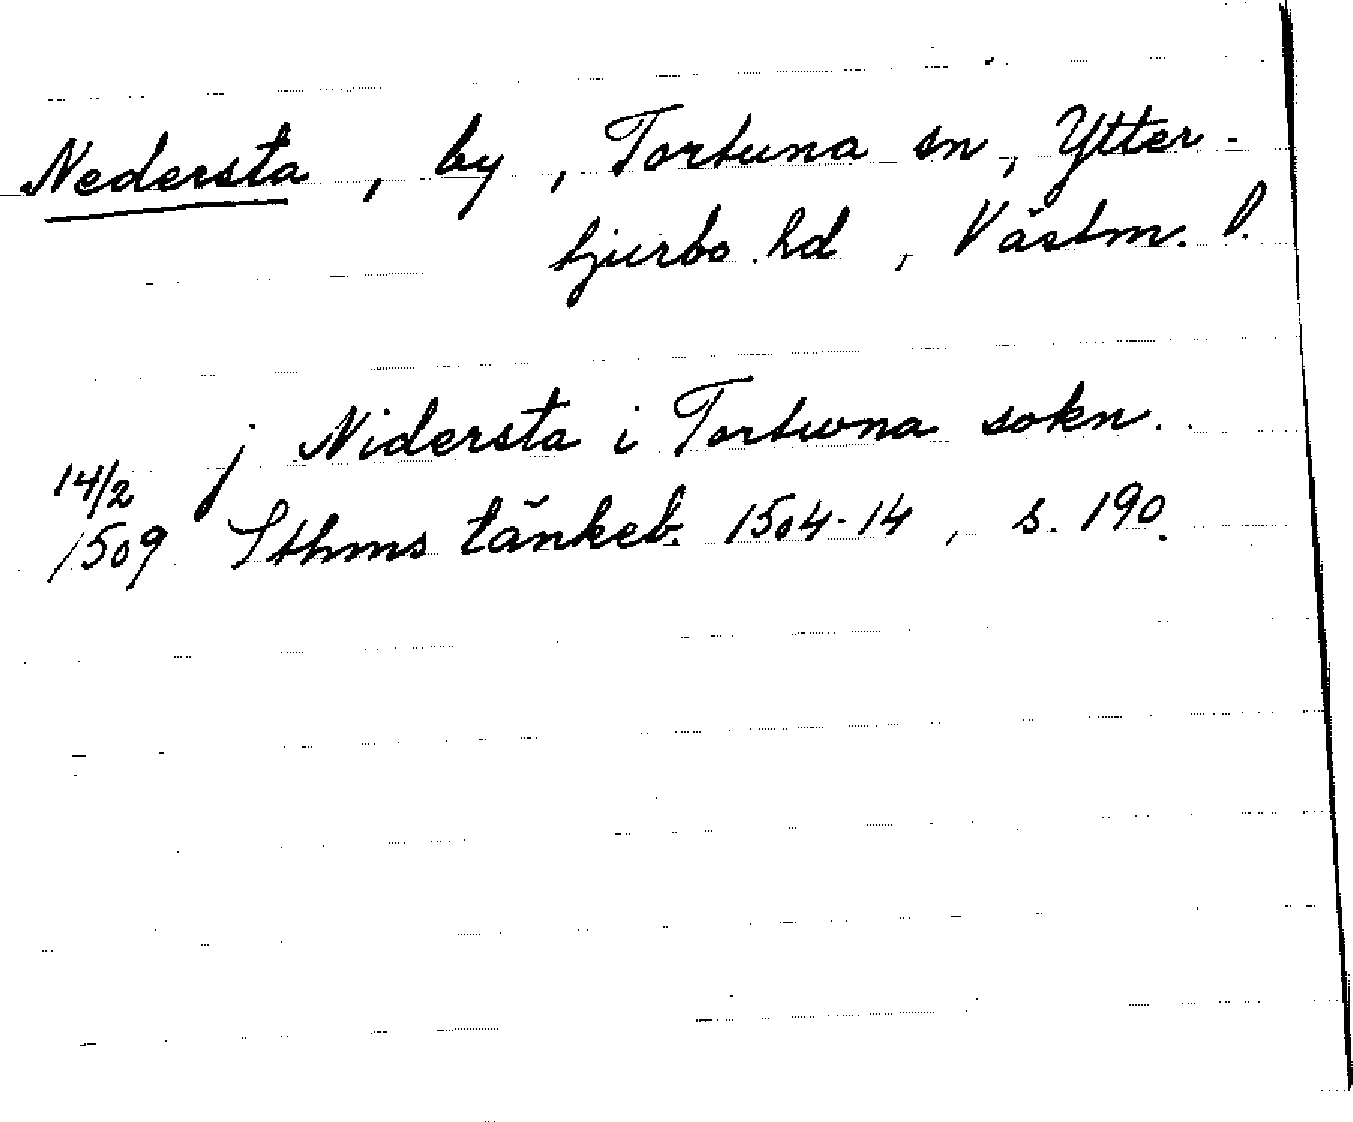 Nedersta, by, Tortuna sn, Ytter-
tjurbo hd, Västm. l.
j Nidersta i Tortwna sokn.
14/2
1509 Sthms tänkeb. 1504-14, s. 190.